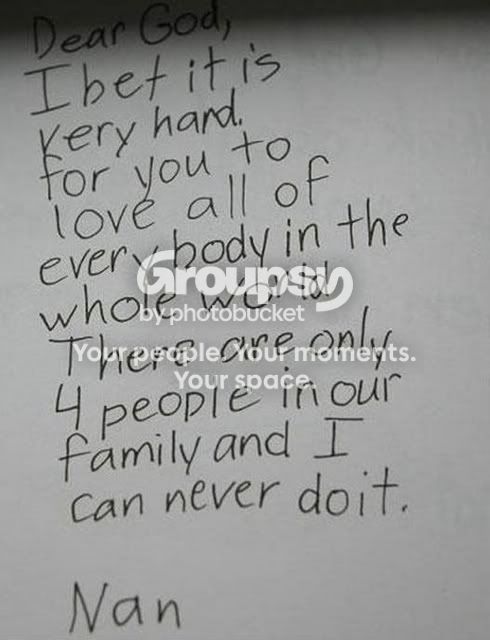 Dear God,
I bet it is
very hard.
for you to
love all of
everybody in the
whole world
Groupsy
by photobucket
There are only
Your people. Your moments.
Your space.
4 people in our
family and I
can never do it.
Nan